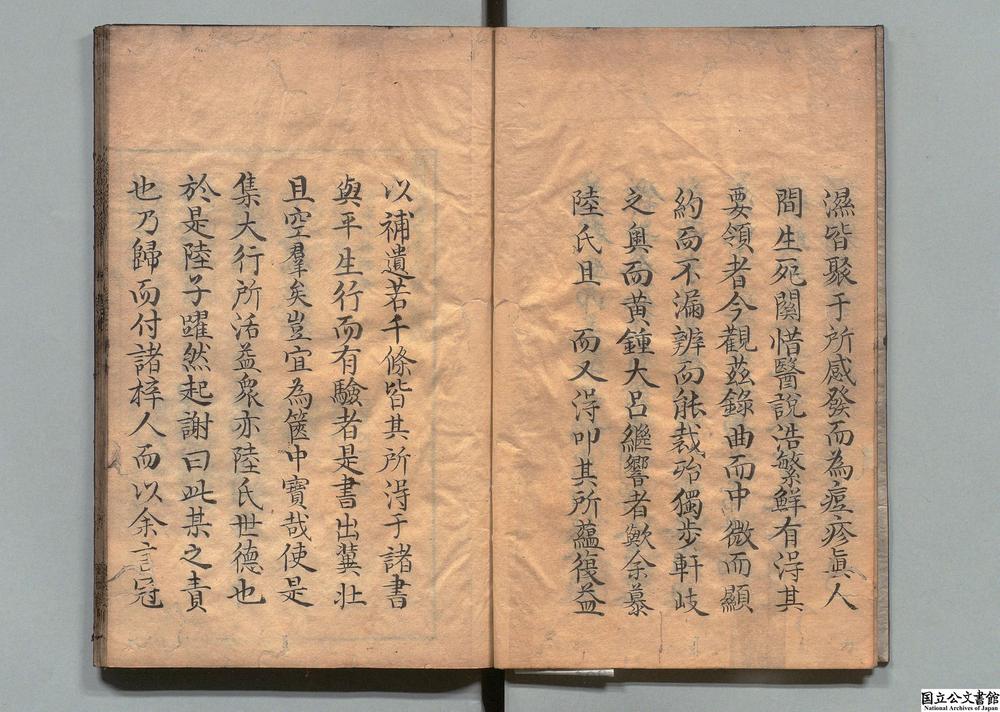 濕皆聚于所感發而為痘疹真人
間生死關惜醫說浩繁鮮有淂其
要領者今觀茲錄曲而中微而顯
約而不漏辨而能裁殆獨步軒岐
之奧而黃鍾大呂繼響者歟余慕
陸氏且 而又淂叩其所蘊復益
以補遺若千條皆其所淂于諸書
與平生行而有驗者是書出冀北
且空羣矣豈宜為篋中寶哉使是
集大行所活益衆亦陸氏世德也
於是陸子躍然起謝曰此某之責
也乃歸而付諸梓人而以余言冠
国立公文書館
National Archives of Japan